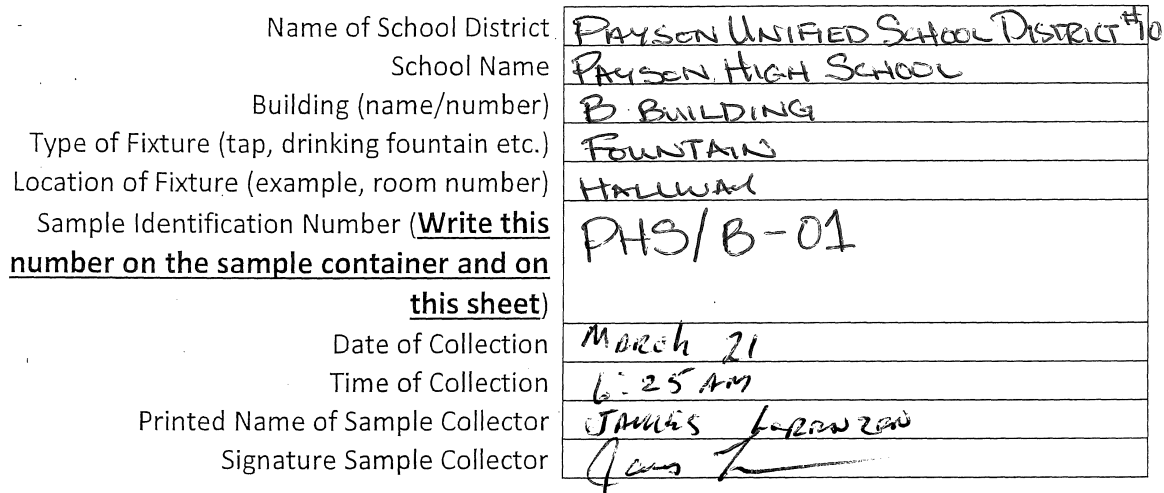 Name of School District PAYSON UNIFIED SCHOOL DISTRICT #10
School Name PAYSON HIGH SCHOOL
Building (name/number) B BUILDING
Type of Fixture (tap, drinking fountain etc.) FOUNTAIN
Location of Fixture (example, room number) HALLWAY
Sample Identification Number (Write this PHS/B-01
number on the sample container and on
this sheet)
Date of Collection March 21
Time of Collection 6:25 AM
Printed Name of Sample Collector JAMES LORENZEN
Signature Sample Collector